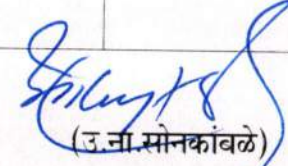 (उ.ना.सोनकांबळे)